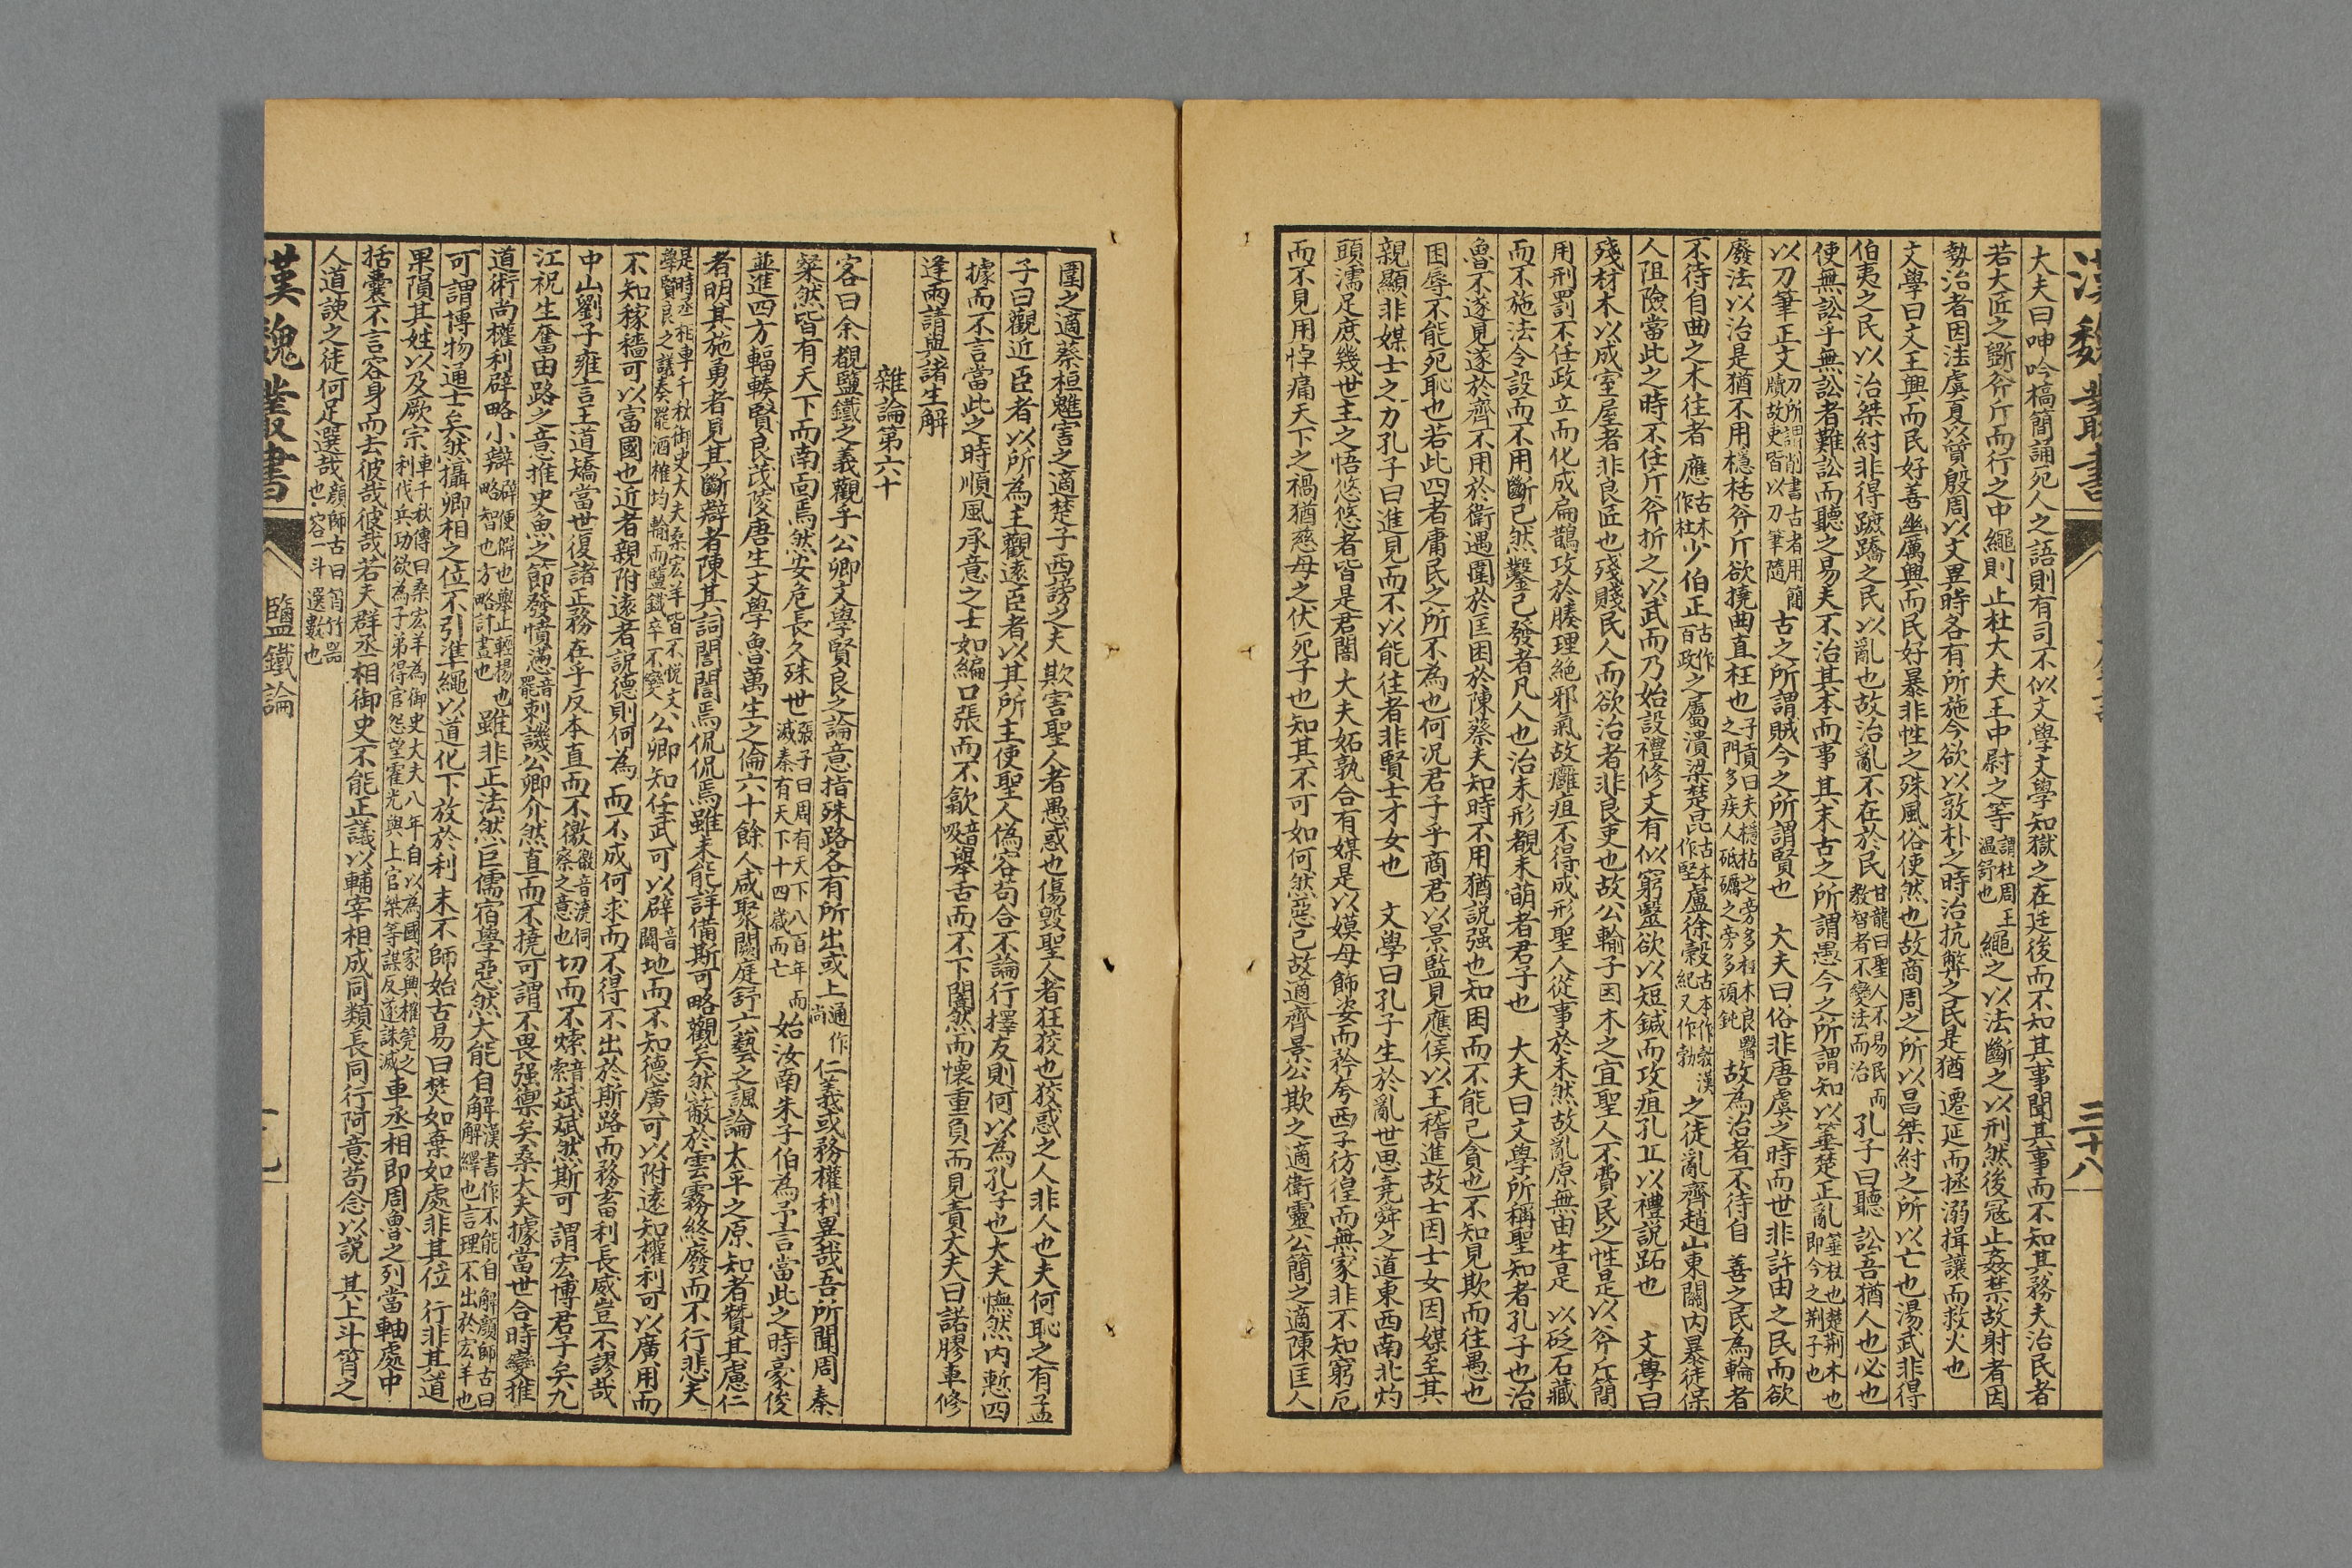 大夫曰呻吟槁簡誦死人之語則有司不以文學文學知獄之在廷後而不知其事聞其事而不知其務夫治民者
若大匠之斲斧斤而行之中繩則止杜大夫王中尉之等謂杜周王温舒也繩之以法斷之以刑然後寇止姦禁故射者因
勢治者因法虞夏以質殷周以文異時各有所施今欲以敦朴之時治抗弊之民是猶遷延而拯溺揖讓而救火也
文學曰文王興而民好善幽厲興而民好暴非性之殊風俗使然也故商周之所以昌桀紂之所以亡也湯武非得
伯夷之民以治桀紂非得蹠蹻之民以亂也故治亂不在於民甘龍曰聖人不易民而教智者不變法而治孔子曰聽訟吾猶人也必也
使無訟乎無訟者難訟而聽之易夫不治其本而事其末古之所謂愚今之所謂知以箠楚正亂箠杖也楚荆木也即今之荆子也
以刀筆正文刀所謂削書古者用簡牘故吏皆以刀筆隨古之所謂賊今之所謂賢也　大夫曰俗非唐虞之時而世非許由之民而欲
廢法以治是猶不用檃栝斧斤欲撓曲直枉也子貢曰夫檃栝之旁多枉木良醫之門多疾人砥礪之旁多頑鈍故為治者不待自善之民為輪者
不待自曲之木往者應古本作杜少伯正古作百政之屬潰梁楚昆古本作堅盧徐穀古本作縠漢紀又作勃之徒亂齊趙山東關內暴徒保
人阻險當此之時不任斤斧折之以武而乃始設禮修文有似窮醫欲以短鍼而攻疽孔丘以禮説跖也　文學曰
殘材木以成室屋者非良匠也殘賤民人而欲治者非良吏也故公輸子因木之宜聖人不費民之性是以斧斤簡
用刑罰不任政立而化成扁鵲攻於腠理絶邪氣故癰疽不得成形聖人從事於未然故亂原無由生是以砭石藏
而不施法令設而不用斷已然鑿已發者凡人也治未形覩未萌者君子也　大夫曰文學所稱聖知者孔子也治
魯不遂見逐於齊不用於衛遇圍於匡困於陳蔡夫知時不用猶説强也知困而不能已貪也不知見欺而往愚也
困辱不能死恥也若此四者庸民之所不為也何況君子乎商君以景監見應侯以王稽進故士因士女因媒至其
親顯非媒士之力孔子曰進見而不以能往者非賢士才女也　文學曰孔子生於亂世思堯舜之道東西南北灼
頭濡足庶幾世主之悟悠悠者皆是君闇大夫妬孰合有媒是以嫫母飾姿而矜夸西子彷徨而無家非不知窮厄
而不見用悼痛天下之禍猶慈母之伏死子也知其不可如何然惡已故適齊景公欺之適衛靈公簡之適陳匡人
漢魏叢書
三十八
圍之適蔡桓魋害之適楚子西謗之夫欺害聖人者愚惑也傷毀聖人者狂狡也狡惑之人非人也夫何恥之有孟
子曰觀近臣者以所為主觀遠臣者以其所主使聖人偽容苟合不論行擇友則何以為孔子也大夫憮然內慙四
據而不言當此之時順風承意之士如編口張而不歙音吸舉舌而不下闇然而懷重負而見責大夫曰諾膠車修
逢雨請與諸生解
雜論第六十
客曰余覩鹽鐵之義觀乎公卿文學賢良之論意指殊路各有所出或上通作尚仁義或務權利異哉吾所聞周秦
粲然皆有天下而南面焉然安危長久殊世張子曰周有天下八百年而滅秦有天下十四歲而亡始汝南朱子伯為予言當此之時豪俊
並進四方輻輳賢良茂陵唐生文學魯萬生之倫六十餘人咸聚闕庭舒六藝之諷論太平之原知者贊其慮仁
者明其施勇者見其斷辯者陳其詞誾誾焉侃侃焉雖未能詳備斯可略觀矣然蔽於雲霧終廢而不行悲夫
是時丞相車千秋御史大夫桑宏羊皆不悦文學賢良之議奏罷酒榷均輸而鹽鐵卒不變公卿知任武可以辟音闢地而不知德廣可以附遠知權利可以廣用而
不知稼穡可以富國也近者親附遠者説德則何為而不成何求而不得不出於斯路而務畜利長威豈不謬哉
中山劉子雍言王道矯當世復諸正務在乎反本直而不徼徼音澆伺察之意也切而不㷛音索斌斌然斯可謂宏博君子矣九
江祝生奮由路之意推史魚之節發憤懣音罷刺譏公卿介然直而不撓可謂不畏强禦矣桑大夫據當世合時變推
道術尚權利辟略小辯辟便僻也舉止輕揚也略智也方略計畫也雖非正法然巨儒宿學惡然大能自解漢書作不能自解顔師古曰解繹也言理不出於宏羊也
可謂博物通士矣然攝卿相之位不引準繩以道化下放於利末不師始古易曰焚如棄如處非其位行非其道
果隕其姓以及厥宗車千秋傳曰桑宏羊為御史大夫八年自以為國家興榷筦之利伐兵功欲為子弟得官怨望霍光與上官桀等謀反遂誅滅車丞相即周魯之列當軸處中
括囊不言容身而去彼哉彼哉若夫群丞相御史不能正議以輔宰相成同類長同行阿意苟念以説其上斗筲之
人道諛之徒何足選哉顔師古曰筲竹器也容一斗選數也
漢魏叢書
鹽鐵論